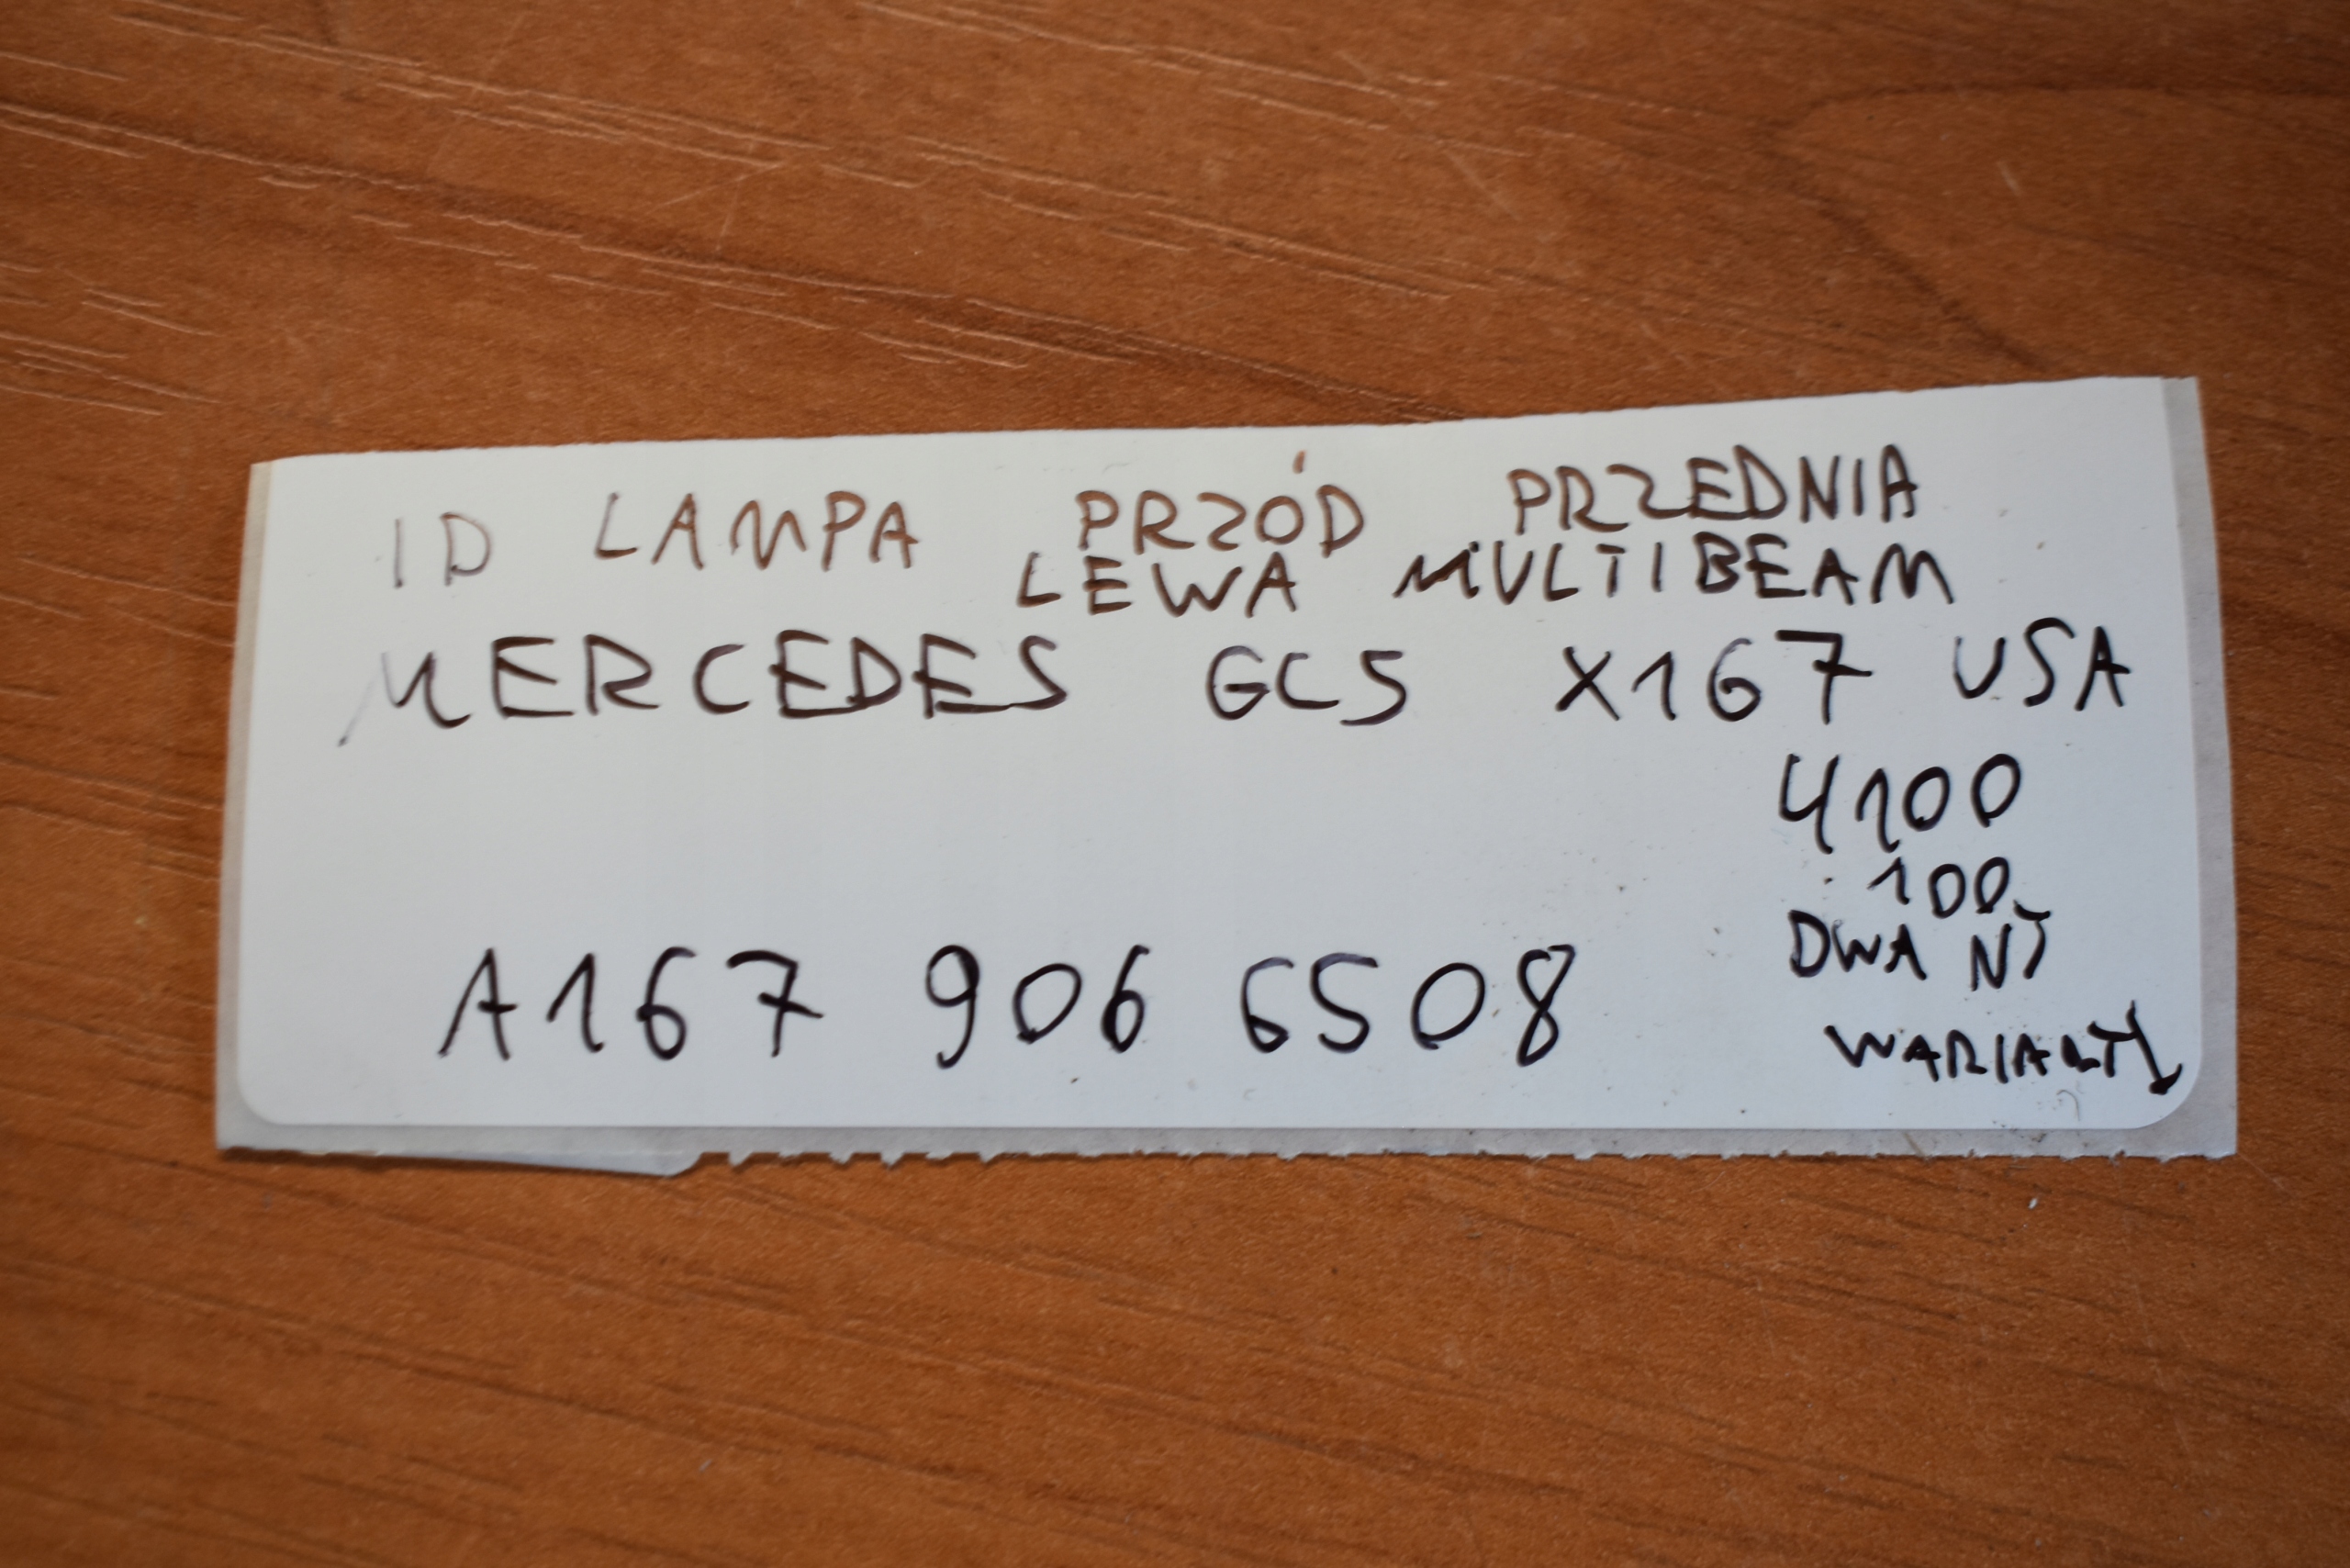 ID LAMPA PRZÓD PRZEDNIA
LEWA MULTIBEAM
MERCEDES GLS X167 USA
4100
100
DWA
A167 906 6508
WARIANTY